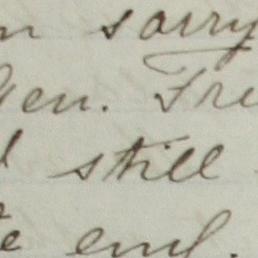 sorry
Gen. Fre
still
end.